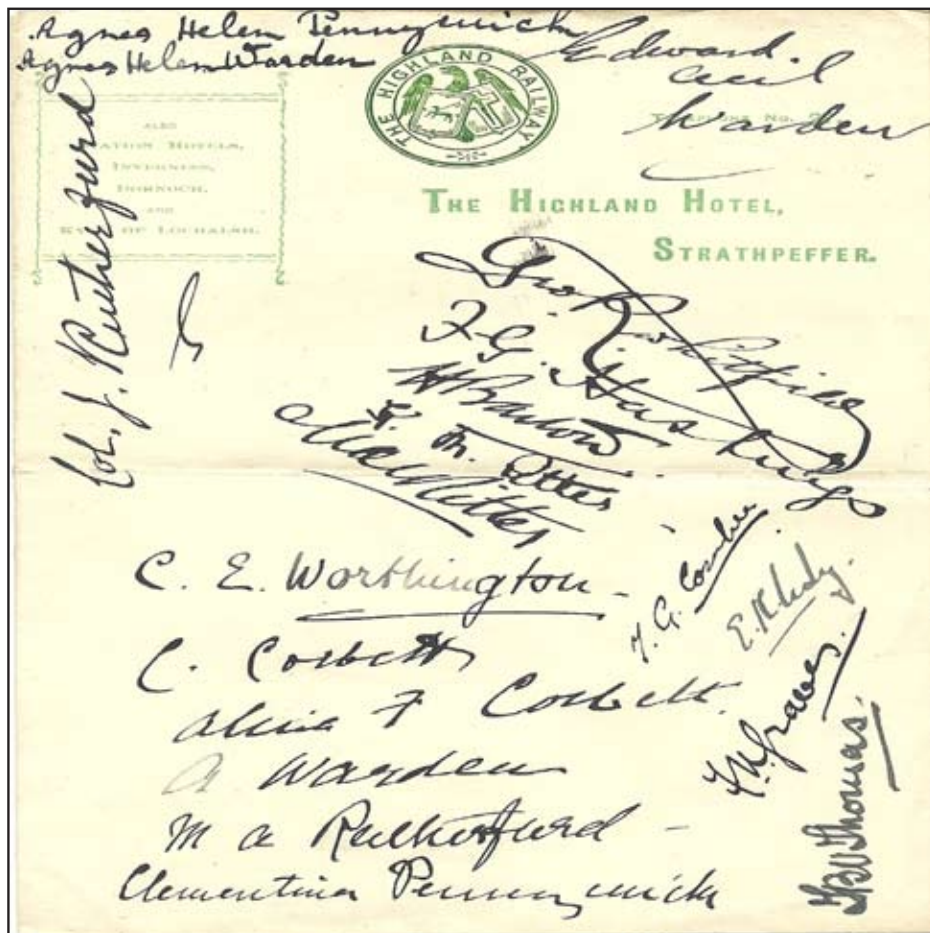 Agnes Helen Pennyquick
Agnes Helen Warden
Edward
Cecil
Warden
THE HIGHLAND RAILWAY
ALSO
STATION HOTELS,
INVERNESS,
DORNOCH,
AND
KYLE OF LOCHALSH.
TELEPHONE No.
THE HIGHLAND HOTEL,
STRATHPEFFER.
Col. J. Rutherfurd
Geo
F. G. Hastings
H Barlow
M.
C. E. Worthington
C. Corbett
F Corbett.
A Warden
M A Rutherfurd
Clementina Pennyquick
T. G.
E.
Graves.
Thomas.